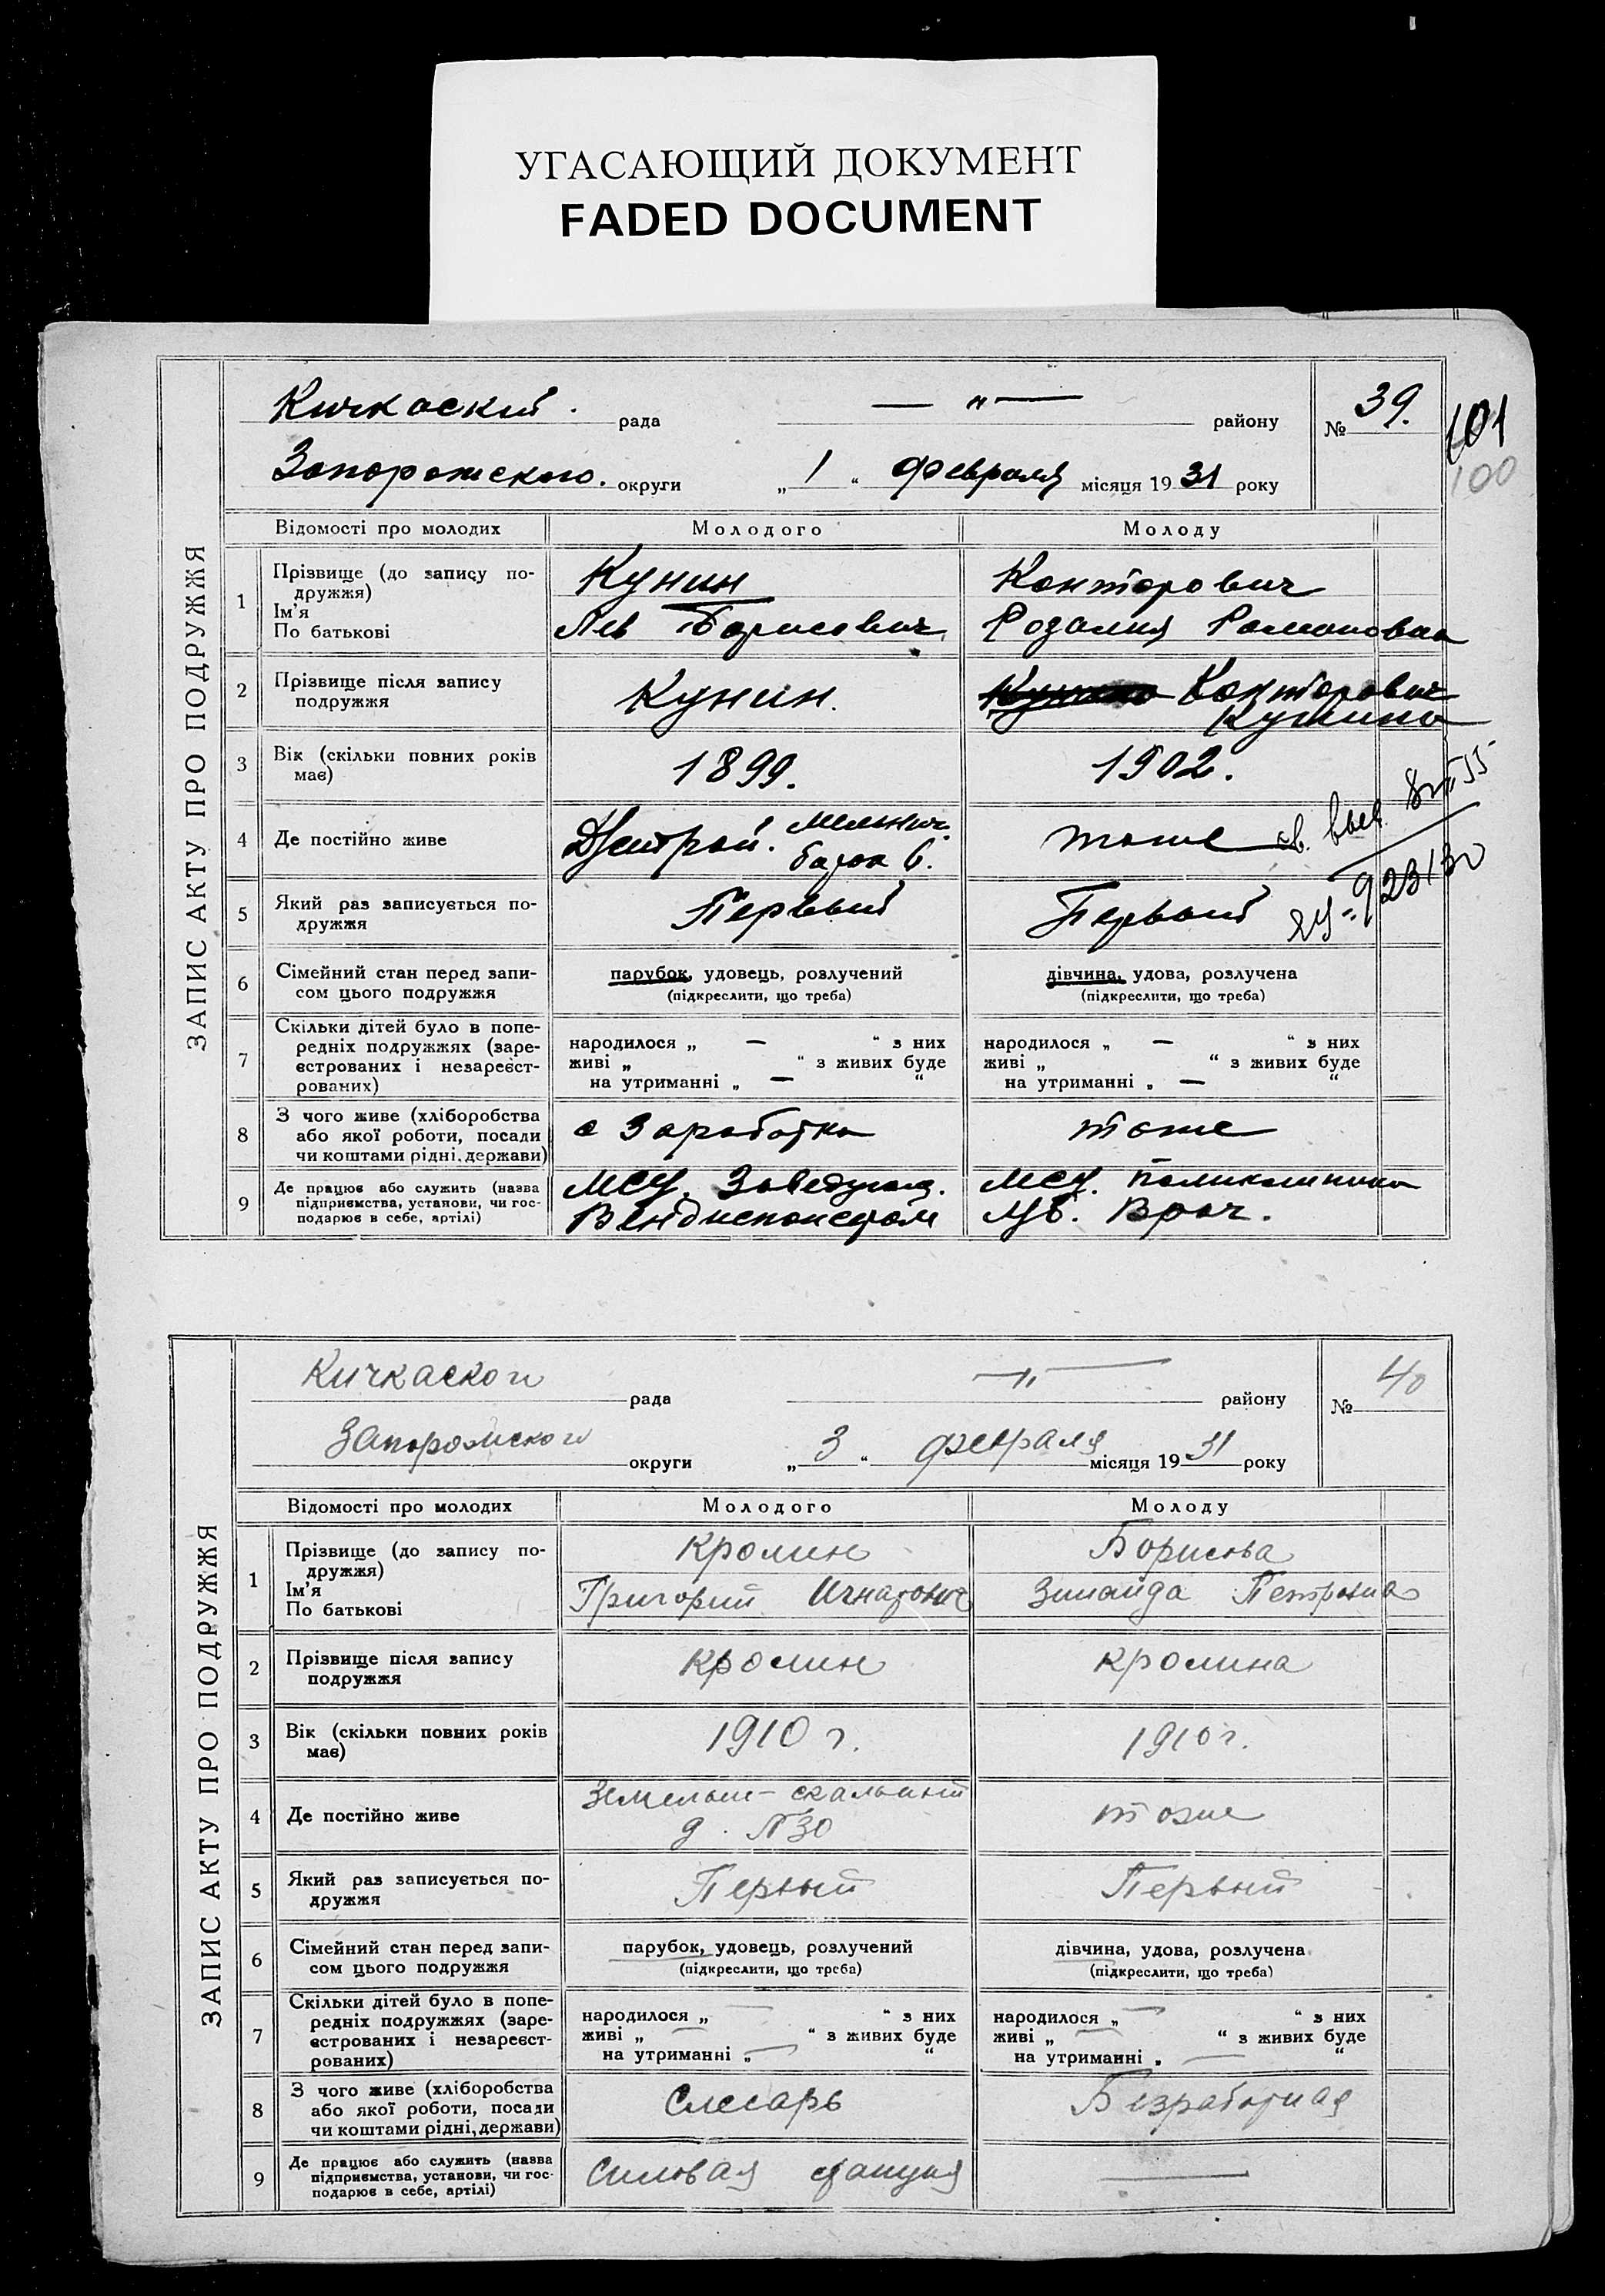 УГАСАЮЩИЙ ДОКУМЕНТ
FADED DOCUMENT
101
100
ЗАПИС АКТУ ПРО ПОДРУЖЖЯ
Кичкаский рада — " — району № 39.
Запорожского. округи „ 1 “ февраля місяця 19 31 року
Відомості про молодих Молодого Молоду
1 Прізвище (до запису по-
дружжя)
Ім'я
По батькові
Кунин
Лев Борисович
Канторович
Розалия Романовна
2 Прізвище після запису
подружжя
Кунин.
Канторович
Кунина
3 Вік (скільки повних років
має)
1899. 1902.
4 Де постійно живе
барак 6.
тоже
5 Який раз записується по-
дружжя
Первый Первый
6 Сімейний стан перед запи-
сом цього подружжя
парубок, удовець, розлучений
(підкреслити, що треба)
дівчина, удова, розлучена
(підкреслити, що треба)
7 Скільки дітей було в попе-
редніх подружжях (заре-
єстрованих і незареєст-
рованих)
народилося „ — “ з них
живі „ “ з живих буде
на утриманні „ — “
народилося „ — “ з них
живі „ “ з живих буде
на утриманні „ — “
8 З чого живе (хліборобства
або якої роботи, посади
чи коштами рідні, держави)
с Заработка тоже
9 Де працює або служить (назва
підприємства, установи, чи гос-
подарює в себе, артілі)
МСУ. Заведующ.
Вендиспансером
МСУ. Поликлиника
Врач.
ЗАПИС АКТУ ПРО ПОДРУЖЖЯ
Кичкаского рада — " — району № 40
Запорожского округи „ 3 “ февраля місяця 19 31 року
Відомості про молодих Молодого Молоду
1 Прізвище (до запису по-
дружжя)
Ім'я
По батькові
Кролин
Григорий Игнатович
Борисова
Зинаида Петровна
2 Прізвище після запису
подружжя
Кролин Кролина
3 Вік (скільки повних років
має)
1910 г. 1910 г.
4 Де постійно живе
д. №30
тоже
5 Який раз записується по-
дружжя
Первый Первый
6 Сімейний стан перед запи-
сом цього подружжя
парубок, удовець, розлучений
(підкреслити, що треба)
дівчина, удова, розлучена
(підкреслити, що треба)
7 Скільки дітей було в попе-
редніх подружжях (заре-
єстрованих і незареєст-
рованих)
народилося „ — “ з них
живі „ — “ з живих буде
на утриманні „ — “
народилося „ — “ з них
живі „ — “ з живих буде
на утриманні „ — “
8 З чого живе (хліборобства
або якої роботи, посади
чи коштами рідні, держави)
Слесарь Безработная
9 Де працює або служить (назва
підприємства, установи, чи гос-
подарює в себе, артілі)
Силовая станция —